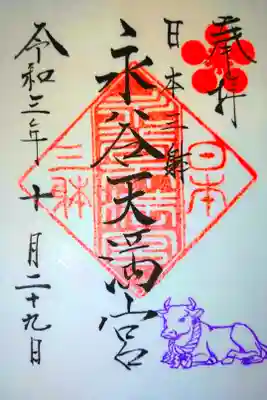 奉拝
日本三躰
永谷天満宮
令和三年十月二十九日
日本
三躰